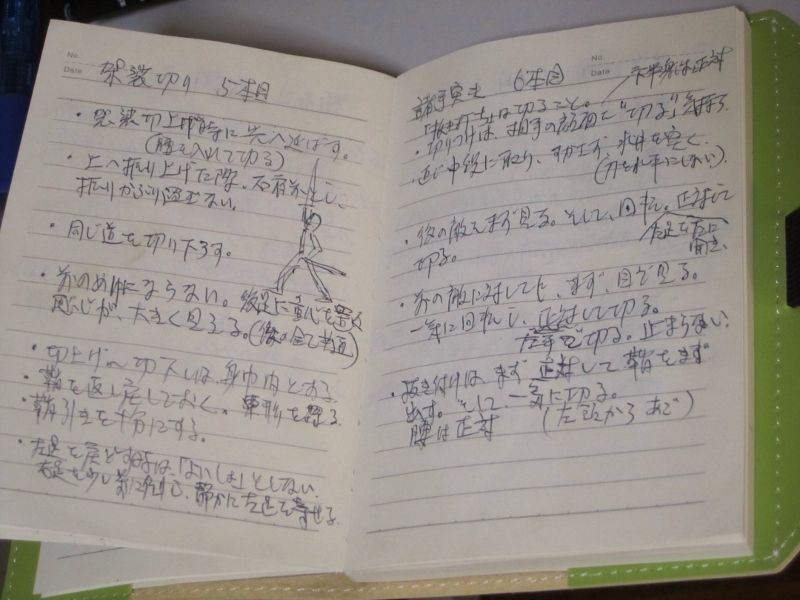 No.
Date
袈裟切り 5本目
・袈裟切上げ時に先へ延ばす。
(腰を入れて切る)
・上へ振り上げた際、右肩前とし、
振りかぶり過ぎない。
・同じ道を切り下ろす。
・前のめりにならない。後足に重心を置く
感じが、大きく見える。
・切上げ〜切下しは身巾内とする。
・鞘を返し戻しておく。
・鞘引きを十分にする。
・左足を戻どす時は、「よいしょ」としない。
右足を少し前に出し、静かに左足を寄せる。
No.
Date
諸手突き 6本目
下半身は正対
「抜き打ち」は切ること。
・切りつけは、相手の顔面を"切る"気持ち。
・中段に取り、すかさず、水月を突く。
(刃を水平にしない)
・後の敵をまず見る。そして、回転。正対して
左足を左に
開き
切る。
・前の敵に対しても、まず、目で見る。
一気に回転し、正対して切る。
で切る。止まらない
・抜き付けは、まず正対して鞘をまず
出す。そして、一気に切る。
腰は正対